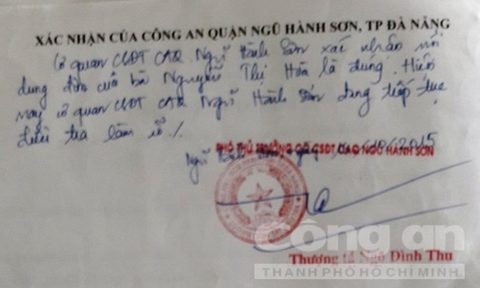 XÁC NHẬN CỦA CÔNG AN QUẬN NGŨ HÀNH SƠN, TP ĐÀ NẴNG
Cơ quan CSĐT CAQ Ngũ Hành Sơn xác nhận nội
dung đơn của bà Nguyễn Thị Hòa là đúng. Hiện
nay cơ quan CSĐT CAQ Ngũ Hành Sơn đang tiếp tục
điều tra làm rõ./.
Ngũ Hành Sơn, ngày 2015
PHÓ THỦ TRƯỞNG CQ CSĐT CAQ NGŨ HÀNH SƠN
Thượng tá Ngô Đình Thu
Công an
THÀNH PHỐ HỒ CHÍ MINH